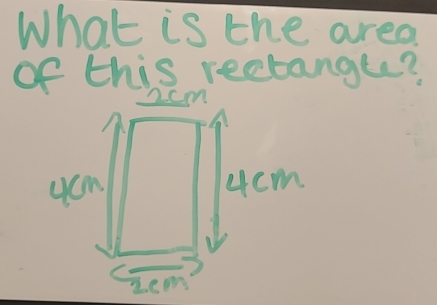 What is the area
of this rectangle?
2cm
4cm
4cm
2cm